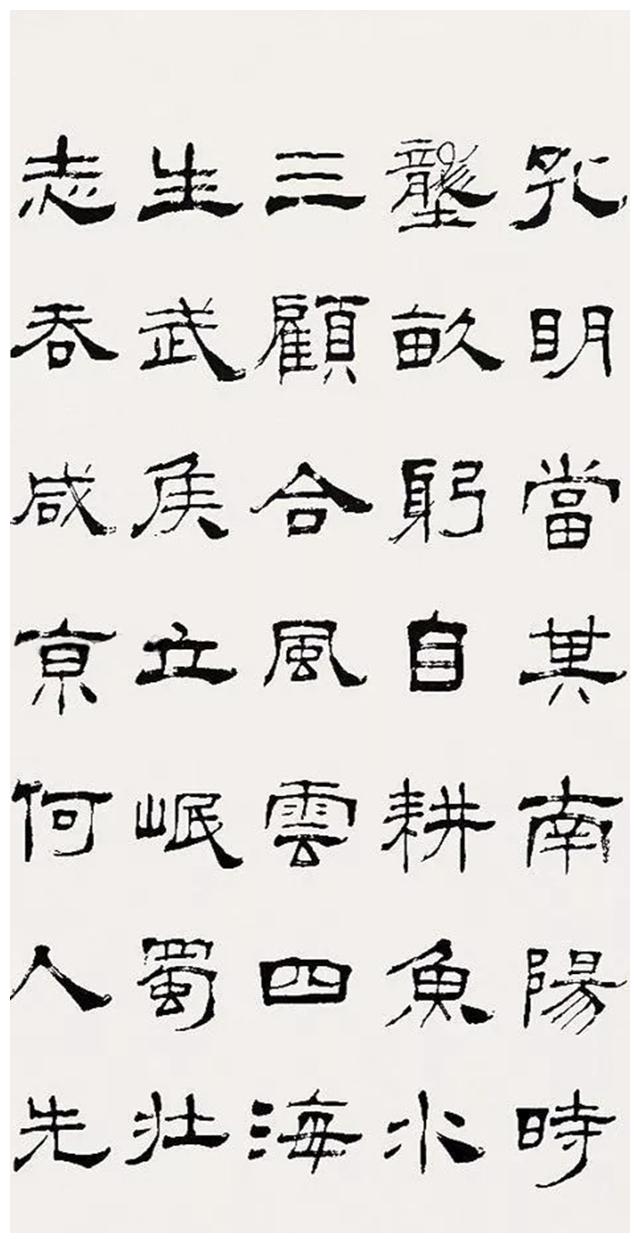 孔明當其南陽時
壟畝躬自耕魚水
三顧合風雲四海
生武矦立岷蜀壯
志吞咸京何人先